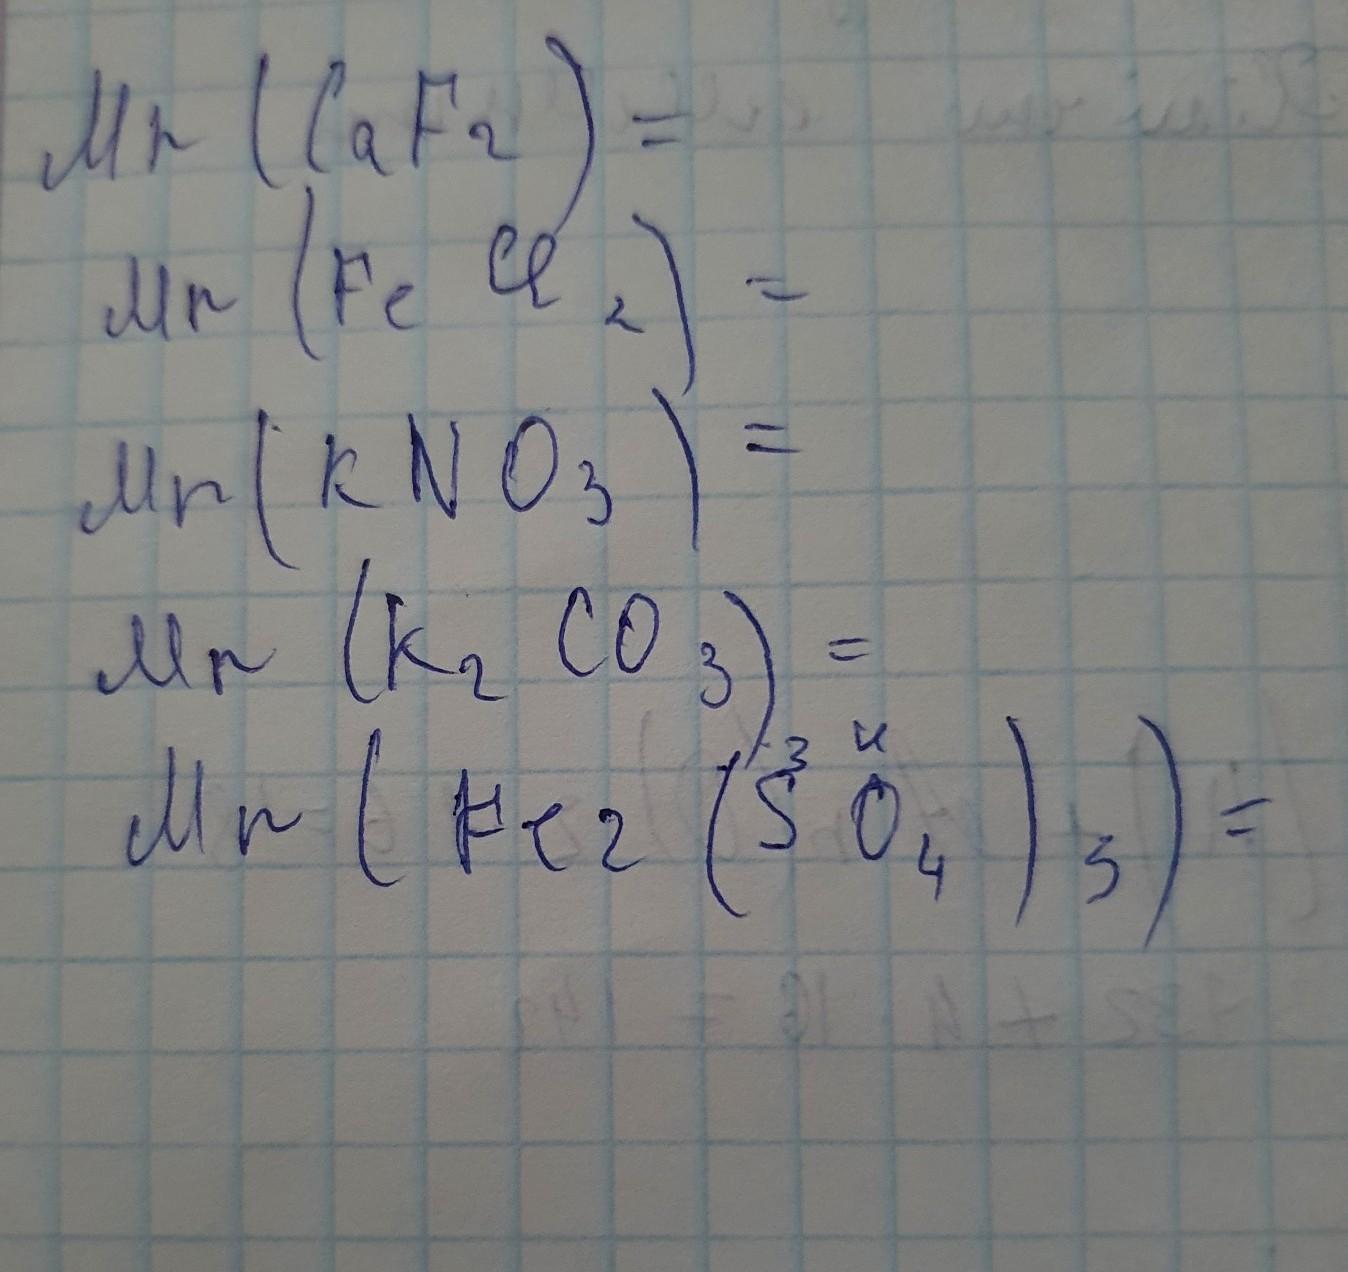 Mr (CaF2) =
Mr (FeCl2) =
Mr (KNO3) =
Mr (K2CO3) =
3 4
Mr (Fe2(SO4)3) =